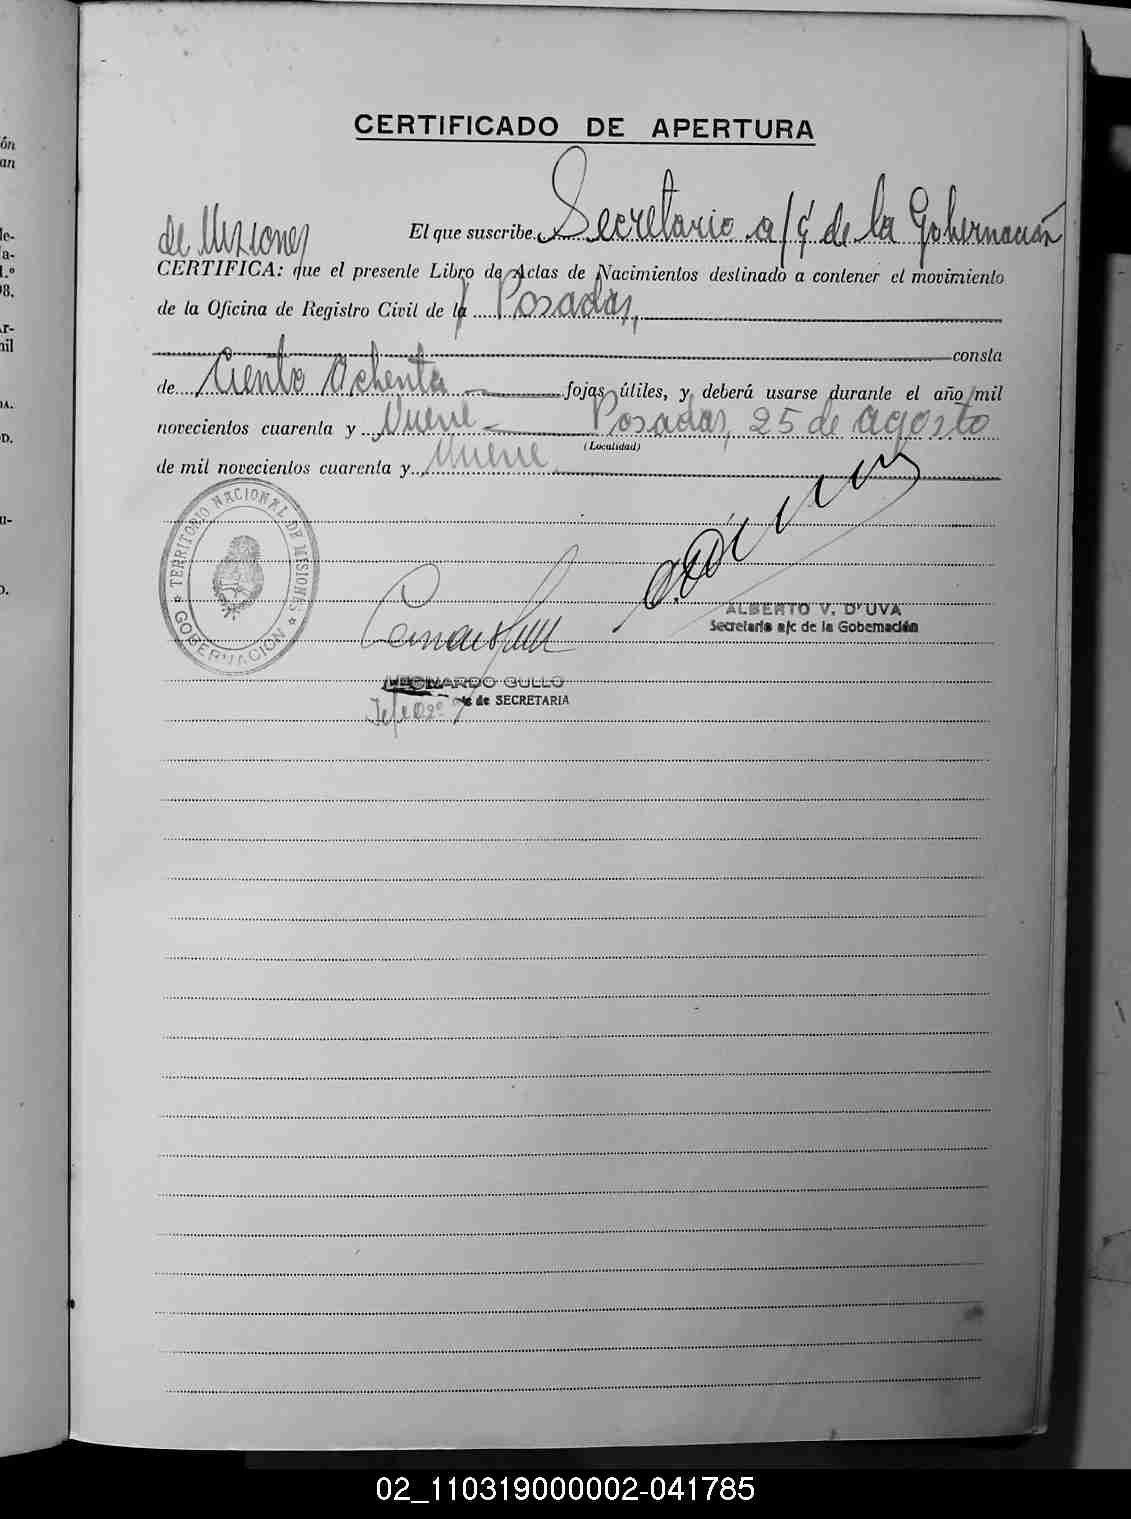 CERTIFICADO DE APERTURA
El que suscribe Secretario a/c de la Gobernación
de Misiones
CERTIFICA: que el presente Libro de Actas de Nacimientos destinado a contener el movimiento
de la Oficina de Registro Civil de la Posadas,
consta
de Ciento Ochenta fojas útiles, y deberá usarse durante el año mil
novecientos cuarenta y Nueve Posadas, 25 de agosto
(Localidad)
de mil novecientos cuarenta y Nueve
TERRITORIO NACIONAL DE MISIONES
GOBERNACION
ALBERTO V. D'UVA
Secretario a/c de la Gobernación
LEONARDO GULLO
de SECRETARIA
02_110319000002-041785